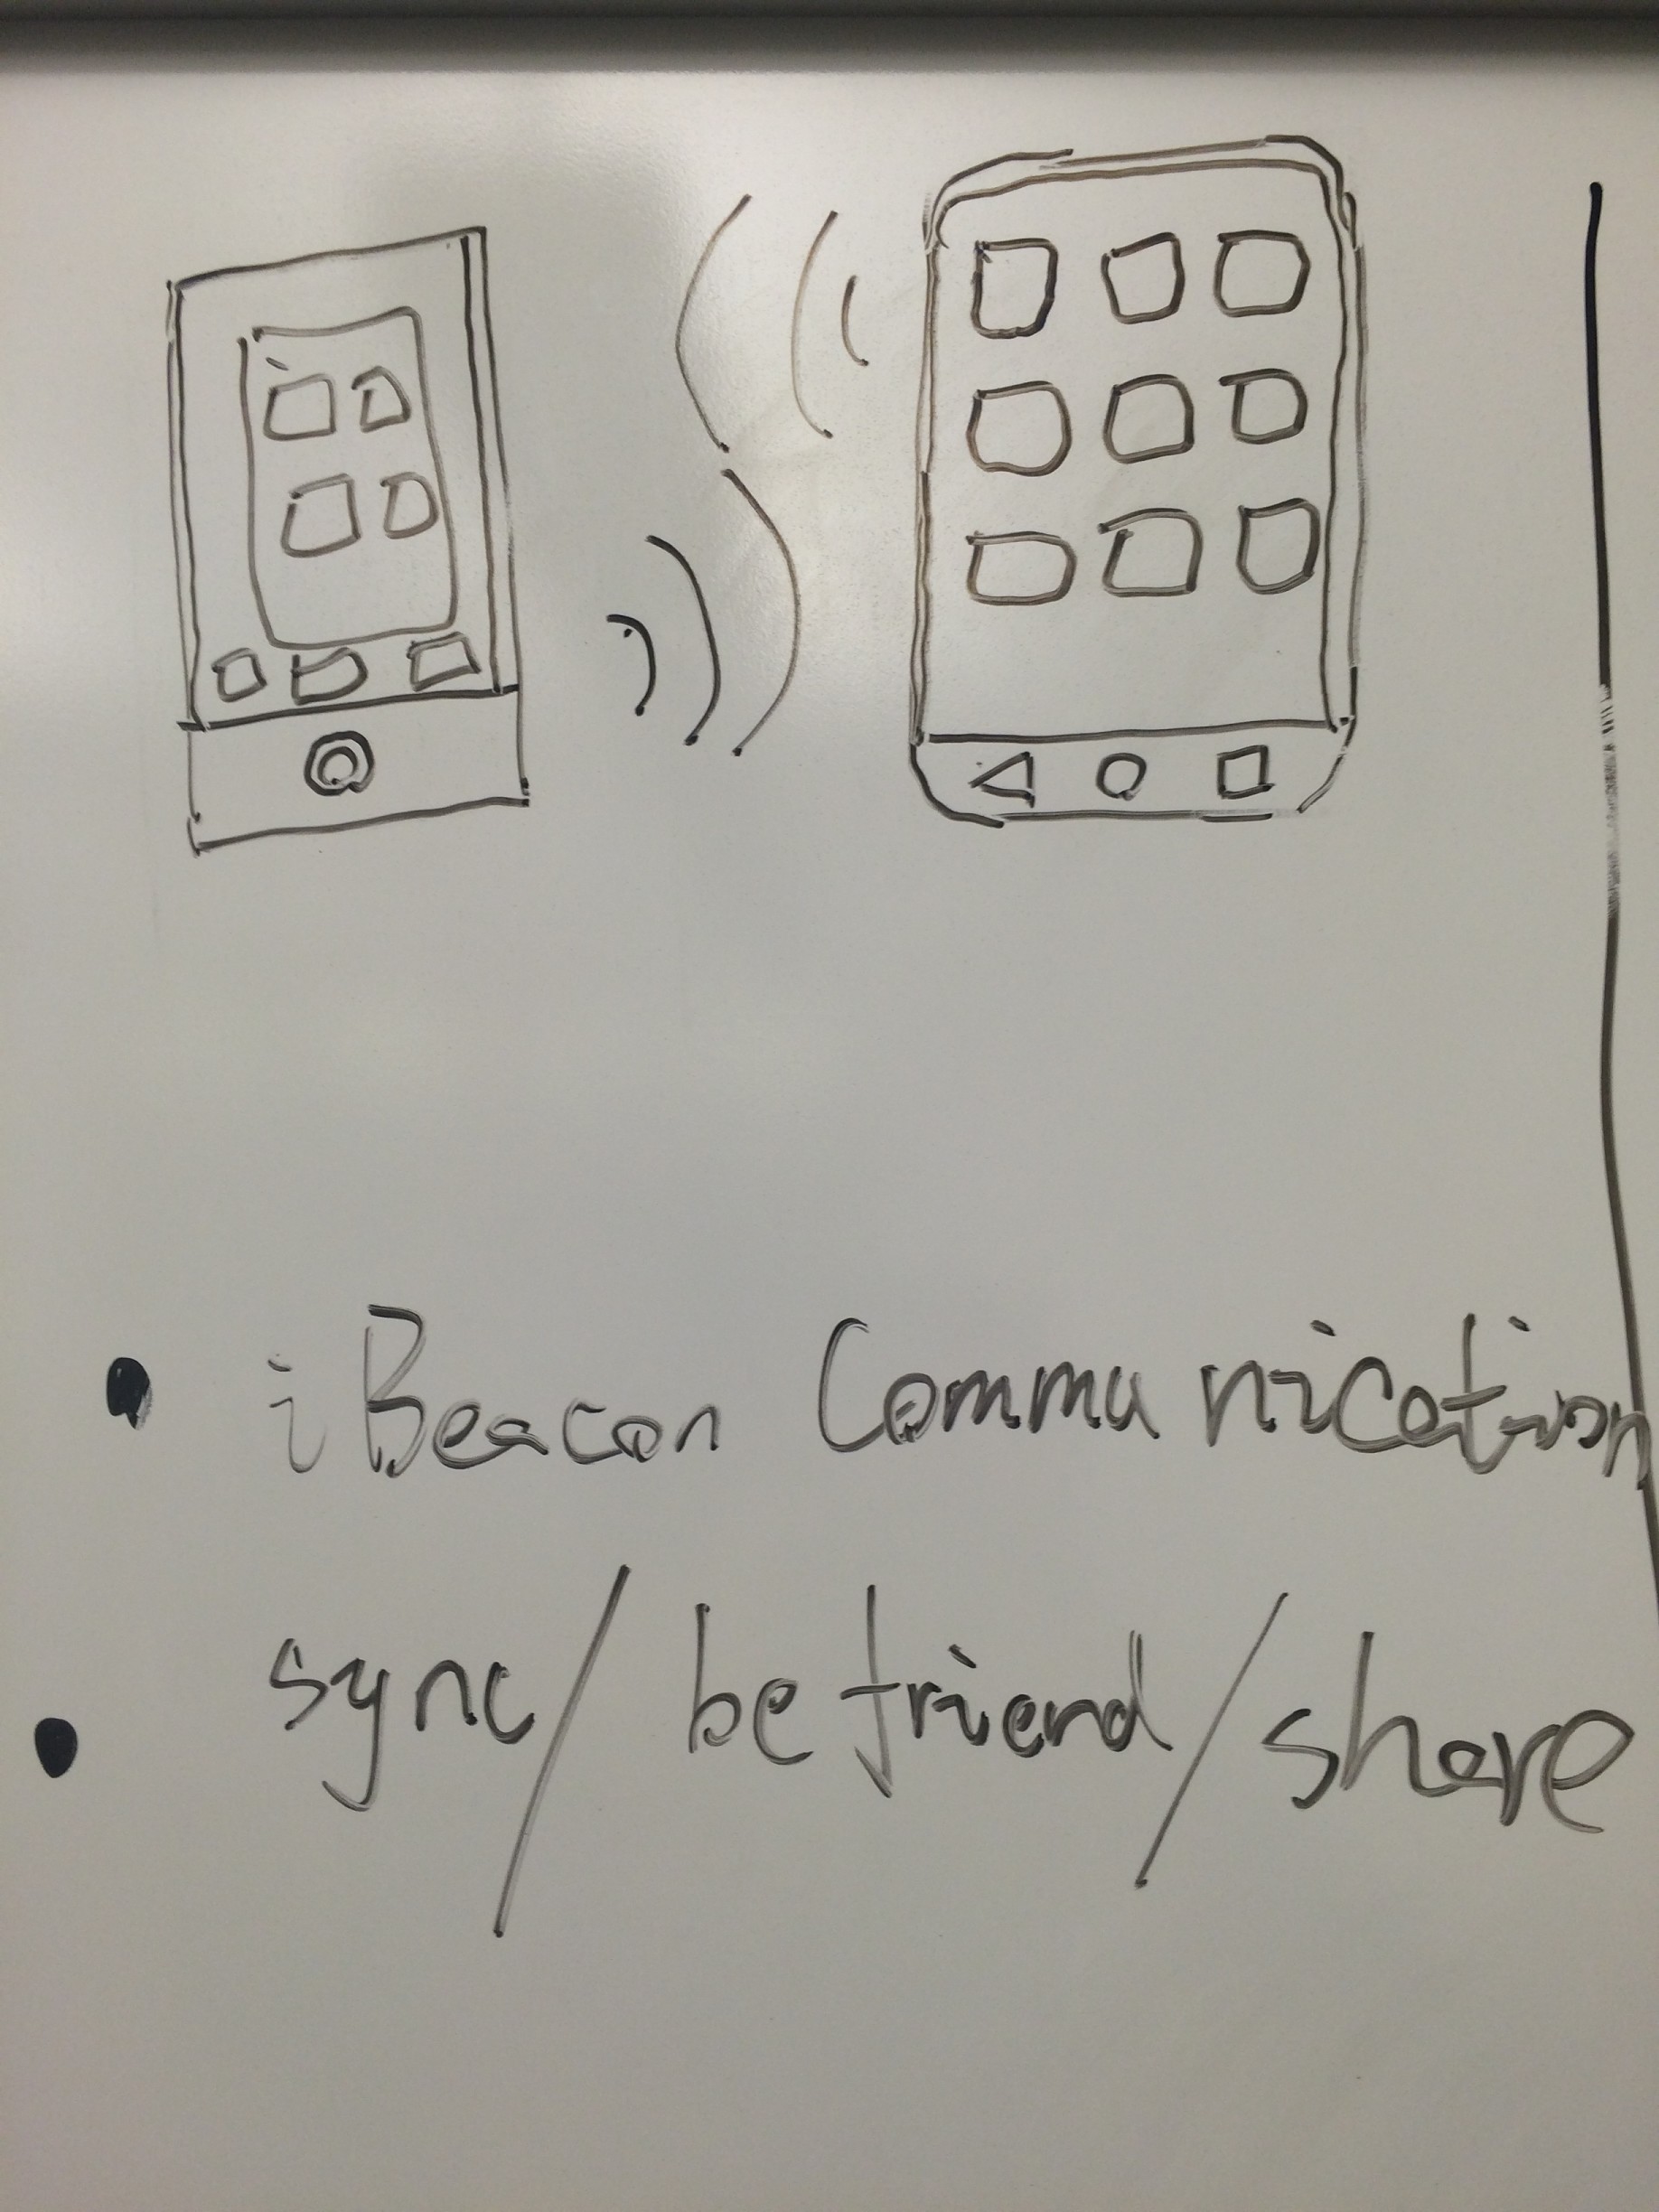 • iBeacon Communication
• sync/be friend/share